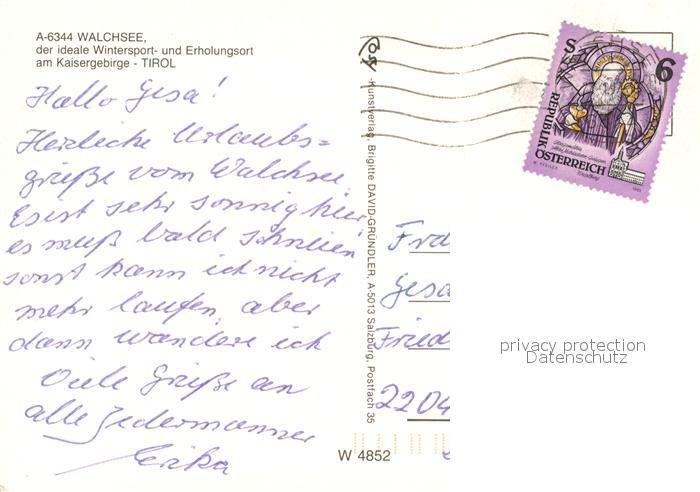 A-6344 WALCHSEE,
der ideale Wintersport- und Erholungsort
am Kaisergebirge - TIROL
Hallo Gesa!
Herzliche Urlaubs=
grüße vom Walchsee.
Es ist sehr sonnig hier,
es muß bald schneien
sonst kann ich nicht
mehr laufen, aber
dann wandere ich
Viele Grüße an
alle Jedermanner
Erika
-Kunstverlag, Brigitte DAVID-GRÜNDLER, A-5013 Salzburg, Postfach 35
W 4852
S 6
REPUBLIK
ÖSTERREICH
Fra
Gesa
Fried
2204
privacy protection
Datenschutz